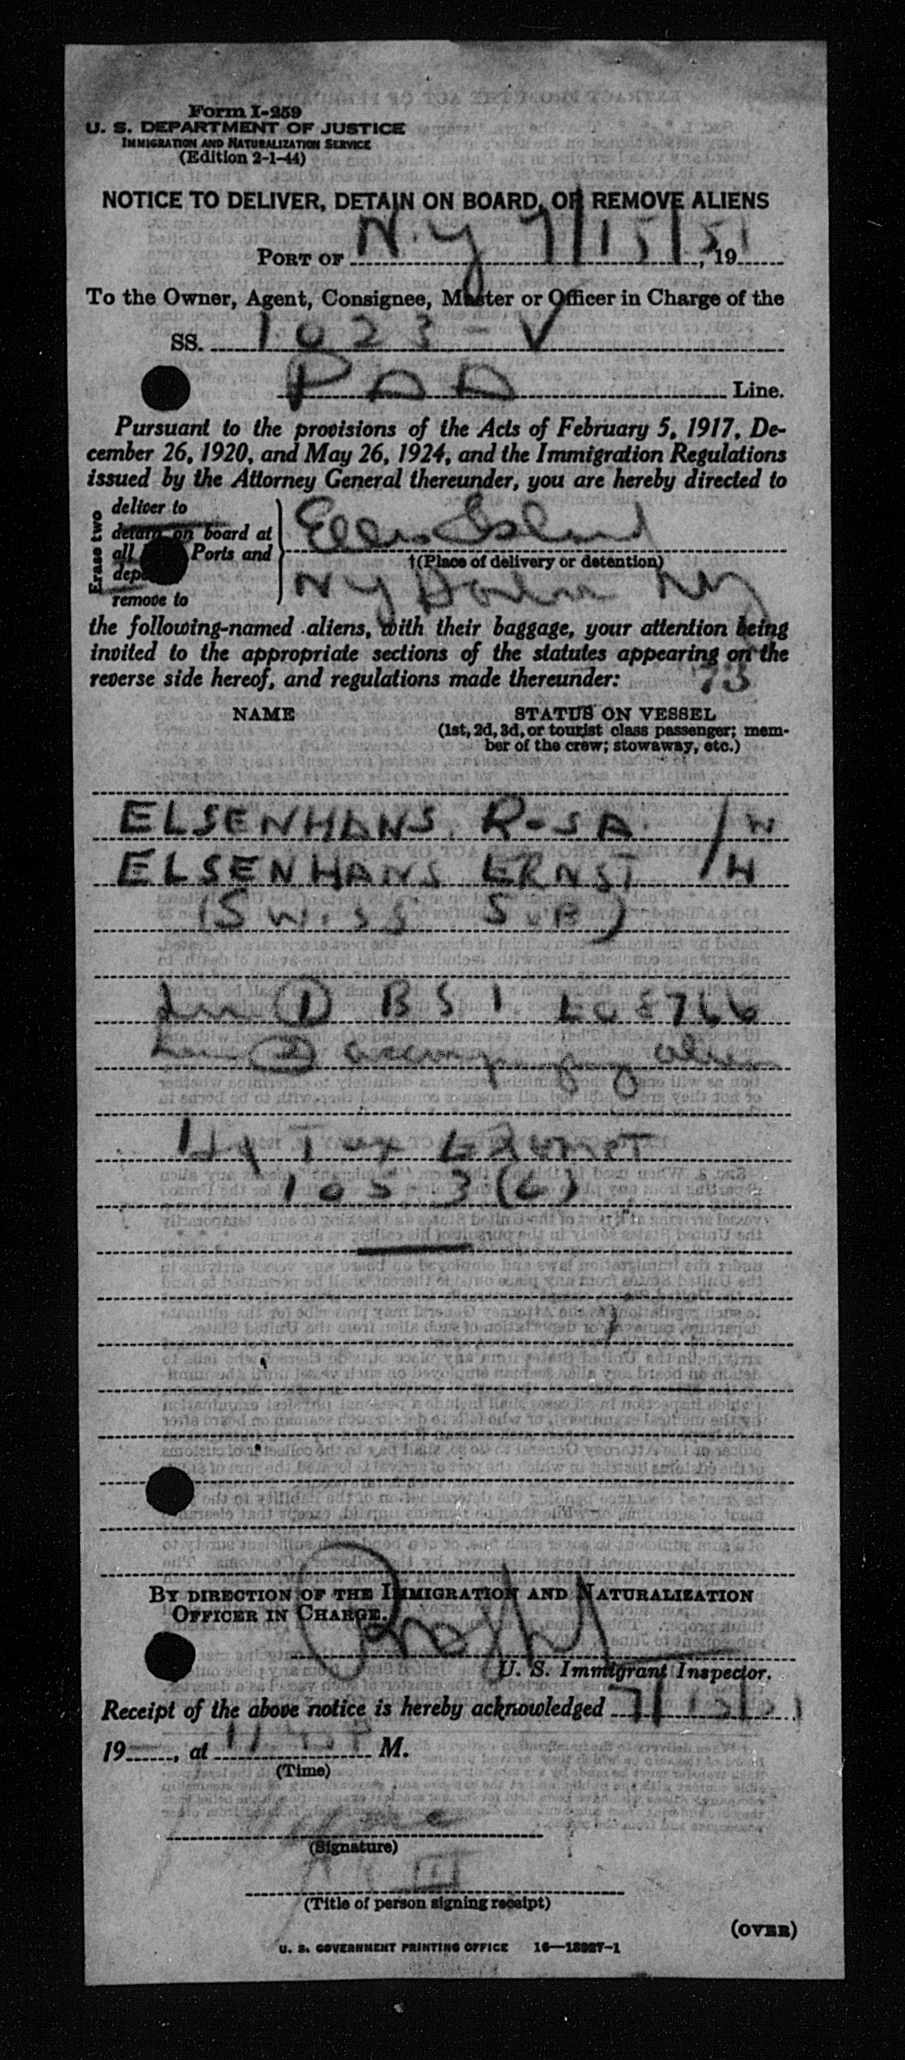 Form I-259
U. S. DEPARTMENT OF JUSTICE
IMMIGRATION AND NATURALIZATION SERVICE
(Edition 2-1-44)
NOTICE TO DELIVER, DETAIN ON BOARD, OR REMOVE ALIENS
PORT OF N.Y 7/15/51, 19
To the Owner, Agent, Consignee, Master or Officer in Charge of the
SS. 1023-V
PAA Line.
Pursuant to the provisions of the Acts of February 5, 1917, De-
cember 26, 1920, and May 26, 1924, and the Immigration Regulations
issued by the Attorney General thereunder, you are hereby directed to
Erase two
deliver to
detain on board at
all Ports and
remove to
Ellis Island
†(Place of delivery or detention)
NY Harbor NY
the following-named aliens, with their baggage, your attention being
invited to the appropriate sections of the statutes appearing on the
reverse side hereof, and regulations made thereunder: 73
NAME
STATUS ON VESSEL
(1st, 2d, 3d, or tourist class passenger; mem-
ber of the crew; stowaway, etc.)
ELSENHANS ROSA /W
ELSENHANS ERNST /H
(SWISS SUB)
Line ① BSI
Line ② accompanying alien
Hd Tax
105 3(6)
BY DIRECTION OF THE IMMIGRATION AND NATURALIZATION
OFFICER IN CHARGE.
U. S. Immigrant Inspector.
Receipt of the above notice is hereby acknowledged 7/15/51
19, at M.
(Time)
(Signature)
(Title of person signing receipt)
(OVER)
U. S. GOVERNMENT PRINTING OFFICE 16—13927-1